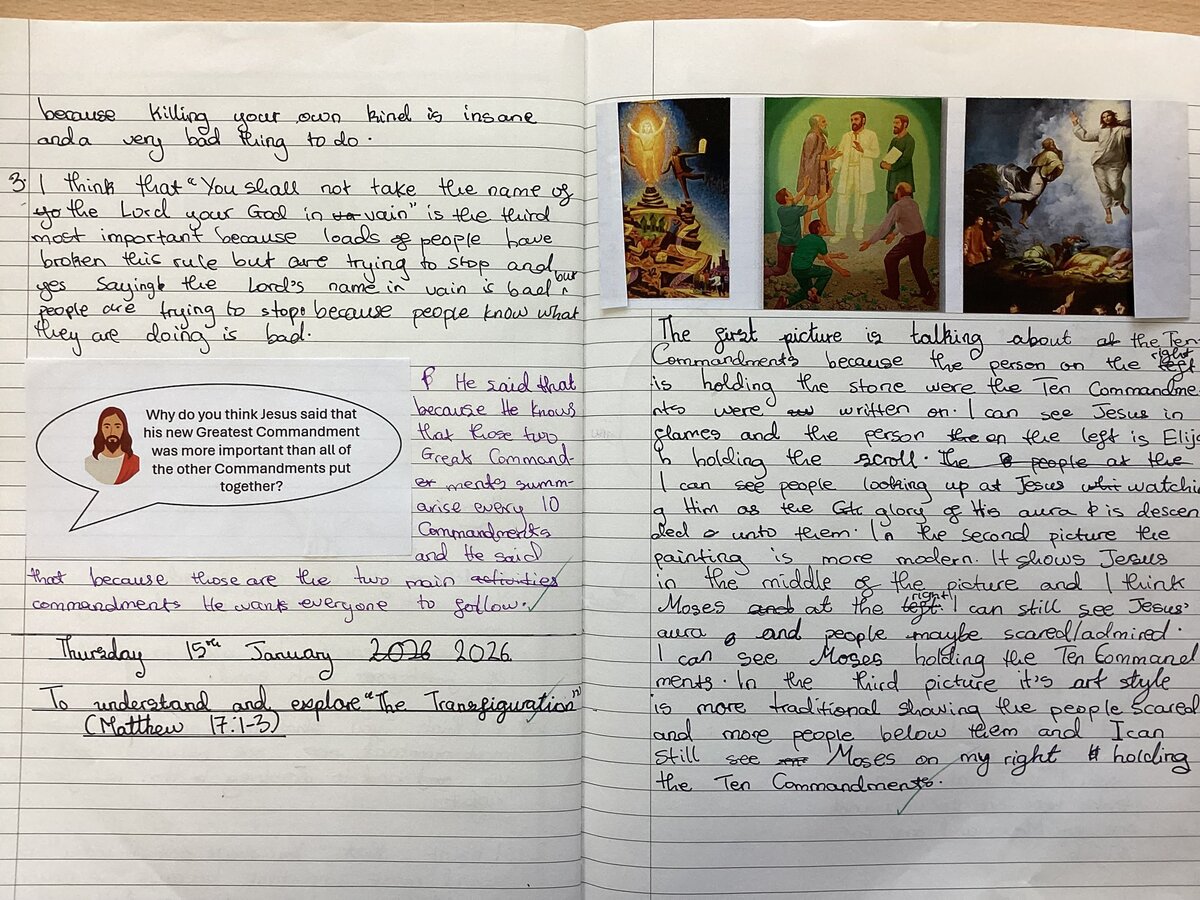 because killing your own kind is insane
and a very bad thing to do.
3. I think that "You shall not take the name of
yo the Lord your God in va vain" is the third
most important because loads of people have
broken this rule but are trying to stop and
yes saying the Lord's name in vain is bad but
people are trying to stop because people know what
they are doing is bad.
Why do you think Jesus said that
his new Greatest Commandment
was more important than all of
the other Commandments put
together?
He said that
because He knows
that those two
Great Command-
ments summ-
arise every 10
Commandments
and He said
that because those are the two main activities
commandments He wants everyone to follow.
Thursday 15th January 2026 2026.
To understand and explore "The Transfiguration"
(Matthew 17:1-3)
The first picture is talking about at the Ten
Commandments because the person on the left right
is holding the stone were the Ten Commandme
nts were written on. I can see Jesus in
flames and the person the on the left is Elija
h holding the scroll. The people at the
I can see people looking up at Jesus watchin
g Him as the glory of His aura is descen
ded unto them. In the second picture the
painting is more modern. It shows Jesus
in the middle of the picture and I think
Moses and at the left right. I can still see Jesus'
aura and people maybe scared/admired.
I can see Moses holding the Ten Command
ments. In the third picture it's art style
is more traditional showing the people scared
and more people below them and I can
still see Moses on my right holding
the Ten Commandments.